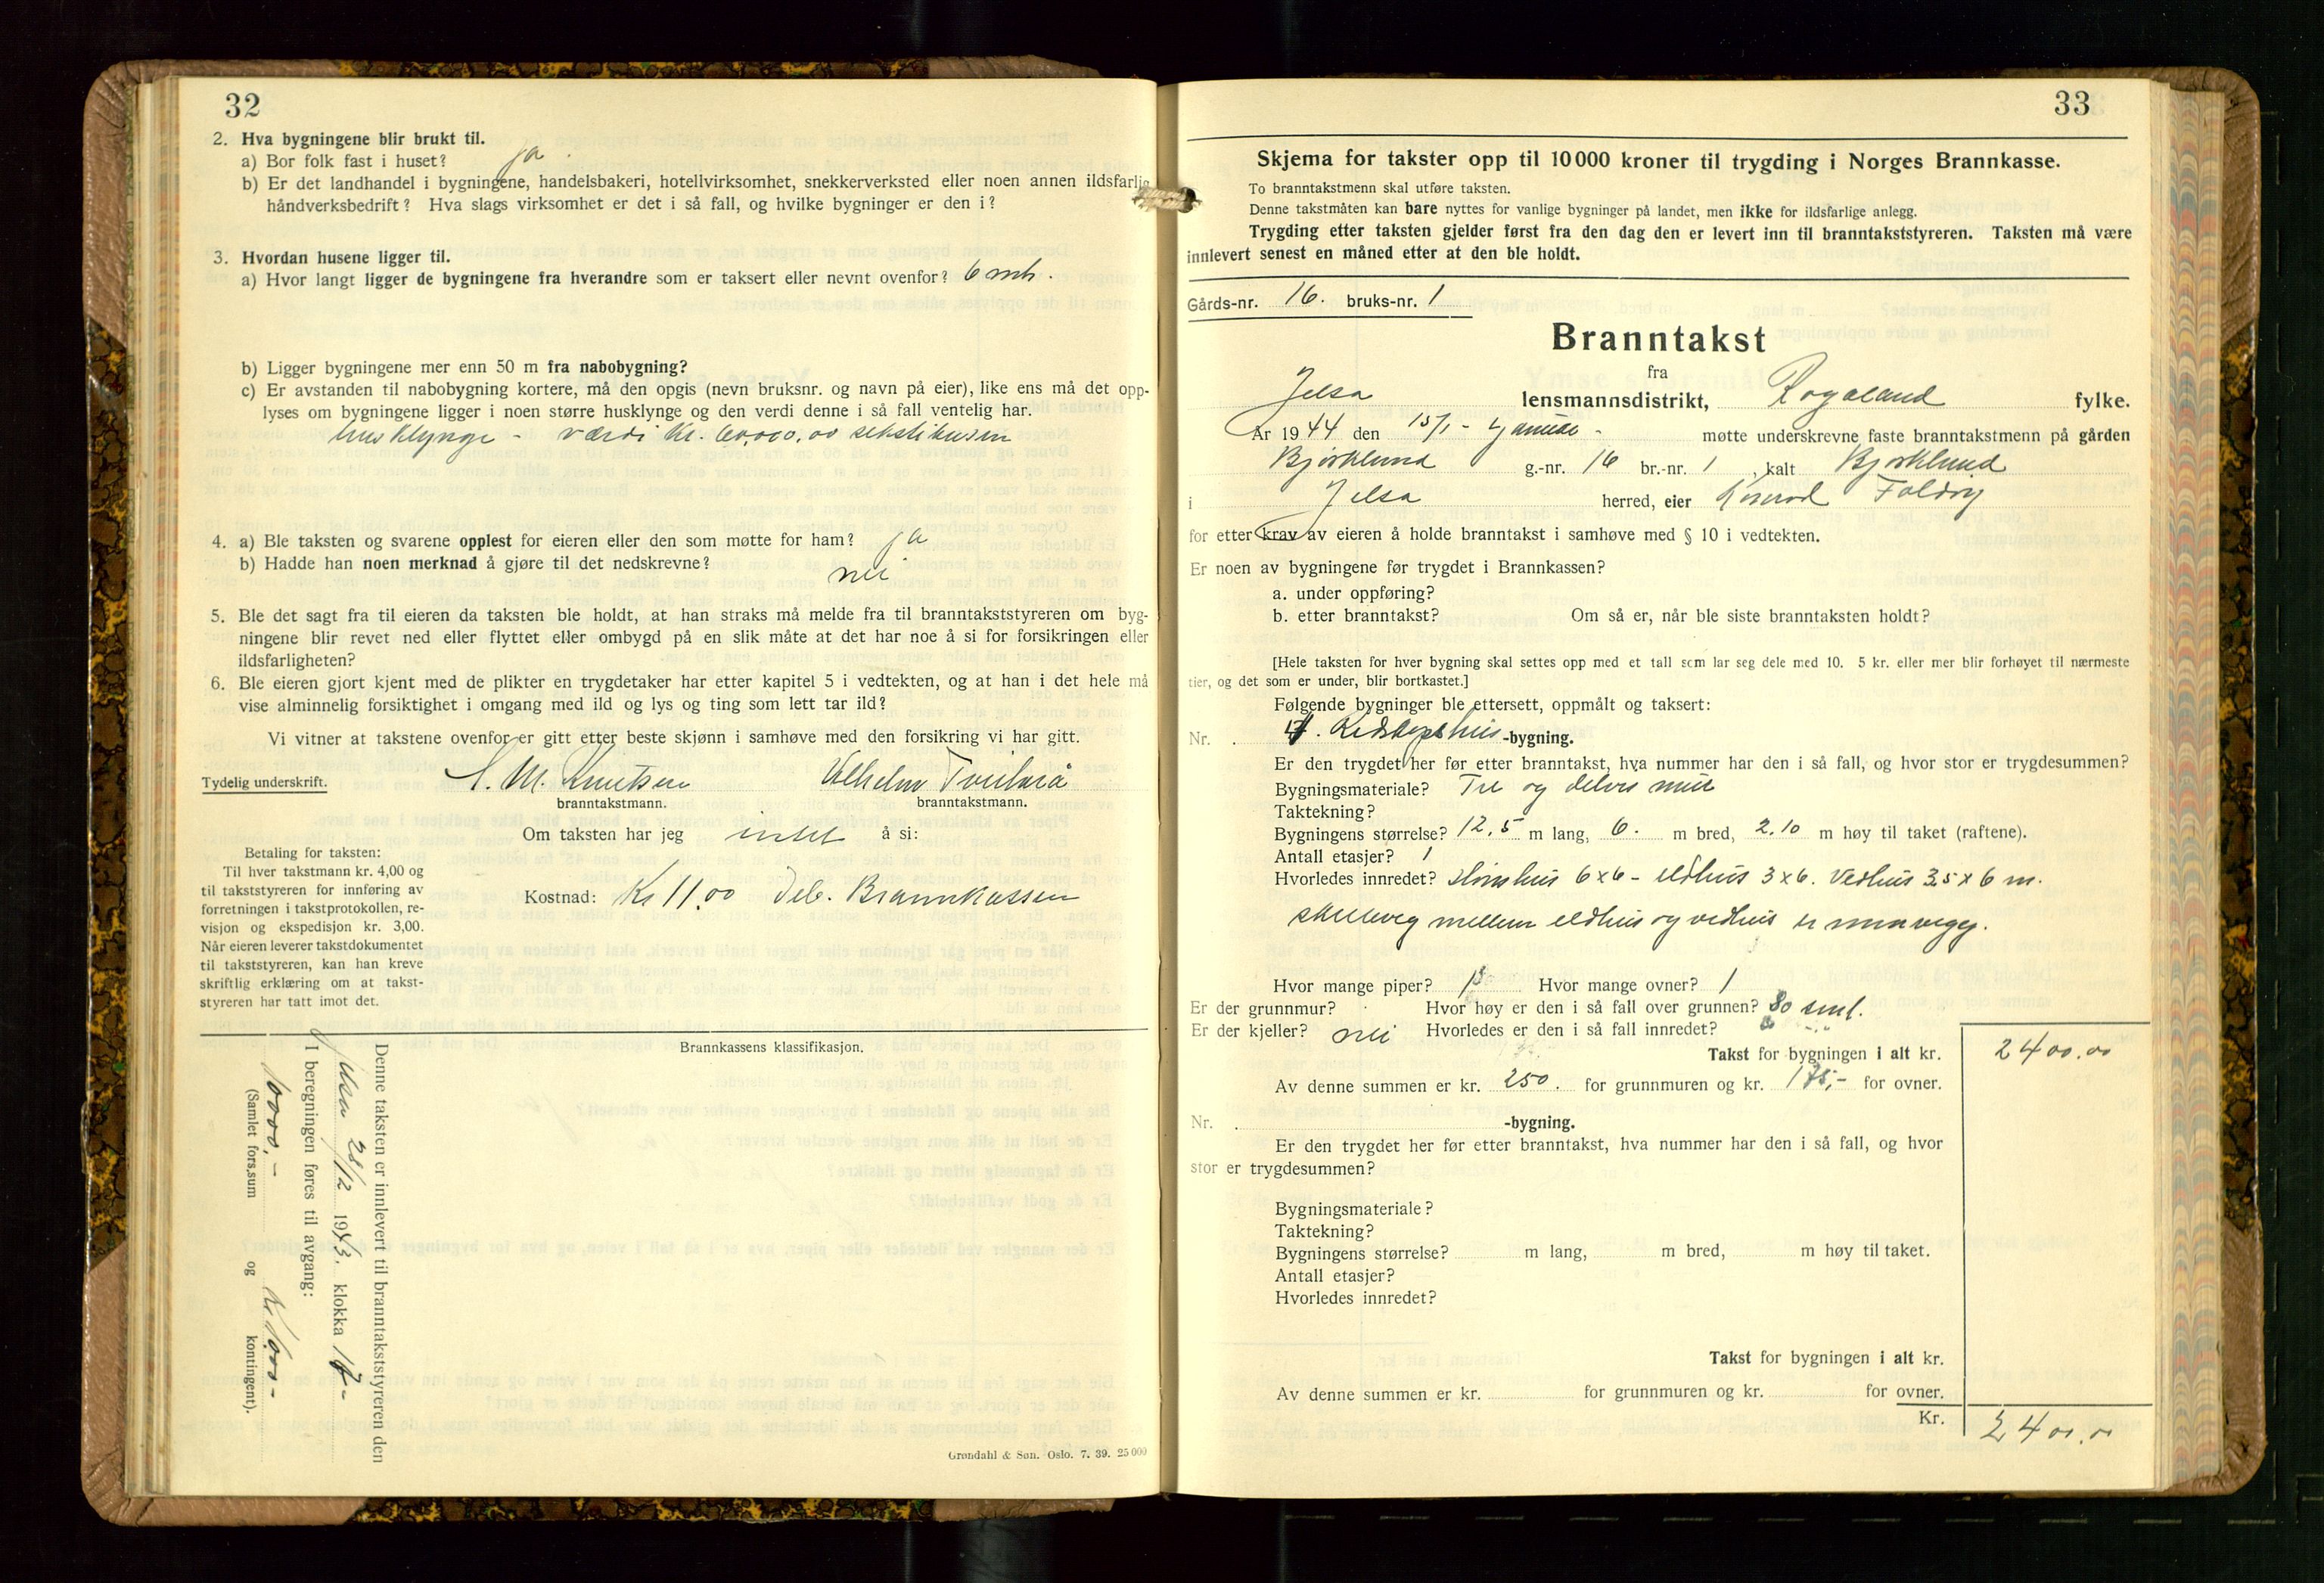 32
2. Hva bygningene blir brukt til.
a) Bor folk fast i huset? ja
b) Er det landhandel i bygningene, handelsbakeri, hotellvirksomhet, snekkerverksted eller noen annen ildsfarlig
håndverksbedrift? Hva slags virksomhet er det i så fall, og hvilke bygninger er den i?
3. Hvordan husene ligger til.
a) Hvor langt ligger de bygningene fra hverandre som er taksert eller nevnt ovenfor? 6 mtr.
b) Ligger bygningene mer enn 50 m fra nabobygning?
c) Er avstanden til nabobygning kortere, må den opgis (nevn bruksnr. og navn på eier), like ens må det opp-
lyses om bygningene ligger i noen større husklynge og den verdi denne i så fall ventelig har.
hus klynge - værdi Kr. 60,000,00
4. a) Ble taksten og svarene opplest for eieren eller den som møtte for ham? ja
b) Hadde han noen merknad å gjøre til det nedskrevne? nei
5. Ble det sagt fra til eieren da taksten ble holdt, at han straks må melde fra til branntakststyreren om byg-
ningene blir revet ned eller flyttet eller ombygd på en slik måte at det har noe å si for forsikringen eller
ildsfarligheten?
6. Ble eieren gjort kjent med de plikter en trygdetaker har etter kapitel 5 i vedtekten, og at han i det hele må
vise alminnelig forsiktighet i omgang med ild og lys og ting som lett tar ild?
Vi vitner at takstene ovenfor er gitt etter beste skjønn i samhøve med den forsikring vi har gitt.
Tydelig underskrift. S. M. Knutsen Vilhelm
branntakstmann. branntakstmann.
Om taksten har jeg intet å si:
Betaling for taksten:
Til hver takstmann kr. 4,00 og
til takststyreren for innføring av
forretningen i takstprotokollen, re-
visjon og ekspedisjon kr. 3,00.
Når eieren leverer takstdokumentet
til takststyreren, kan han kreve
skriftlig erklæring om at takst-
styreren har tatt imot det.
Kostnad: Kr 11,00 deb. Brannkassen
Brannkassens klassifikasjon.
Denne taksten er innlevert til branntakststyreren den
Jelsa 28/12 1943. klokka 17-
I beregningen føres til avgang:
1000,- Kr 1000-
(Samlet fors.sum og kontingent).
Grøndahl & Søn. Oslo. 7. 39. 25000
33
Skjema for takster opp til 10000 kroner til trygding i Norges Brannkasse.
To branntakstmenn skal utføre taksten.
Denne takstmåten kan bare nyttes for vanlige bygninger på landet, men ikke for ildsfarlige anlegg.
Trygding etter taksten gjelder først fra den dag den er levert inn til branntakststyreren. Taksten må være
innlevert senest en måned etter at den ble holdt.
Gårds-nr. 16. bruks-nr. 1
Branntakst
fra
Jelsa lensmannsdistrikt, Rogaland fylke.
År 1944 den 15/1 - januar - møtte underskrevne faste branntakstmenn på gården
Bjørklund g.-nr. 16 br.-nr. 1, kalt Bjørklund
i Jelsa herred, eier Konrad Foldøy
for etter krav av eieren å holde branntakst i samhøve med § 10 i vedtekten.
Er noen av bygningene før trygdet i Brannkassen?
a. under oppføring?
b. etter branntakst? Om så er, når ble siste branntaksten holdt?
[Hele taksten for hver bygning skal settes opp med et tall som lar seg dele med 10. 5 kr. eller mer blir forhøyet til nærmeste
tier, og det som er under, blir bortkastet.]
Følgende bygninger ble ettersett, oppmålt og taksert:
Nr. Redskapshus-bygning.
Er den trygdet her før etter branntakst, hva nummer har den i så fall, og hvor stor er trygdesummen?
Bygningsmateriale? Tre og delvis mur
Taktekning?
Bygningens størrelse? 12,5 m lang, 6. m bred, 2.10 m høy til taket (raftene).
Antall etasjer? 1
Hvorledes innredet? 6x6 - eldhus 3x6. Vedhus 3,5x6 m.
skilleveg mellem eldhus og vedhus er murvegg.
Hvor mange piper? 1 Hvor mange ovner? 1
Er der grunnmur? Hvor høy er den i så fall over grunnen? 80 smt.
Er der kjeller? nei Hvorledes er den i så fall innredet?
Takst for bygningen i alt kr. 2400.00
Av denne summen er kr. 250. for grunnmuren og kr. 175,- for ovner.
Nr. -bygning.
Er den trygdet her før etter branntakst, hva nummer har den i så fall, og hvor
stor er trygdesummen?
Bygningsmateriale?
Taktekning?
Bygningens størrelse? m lang, m bred, m høy til taket.
Antall etasjer?
Hvorledes innredet?
Takst for bygningen i alt kr.
Av denne summen er kr. for grunnmuren og kr. for ovner.
Kr. 2400.00